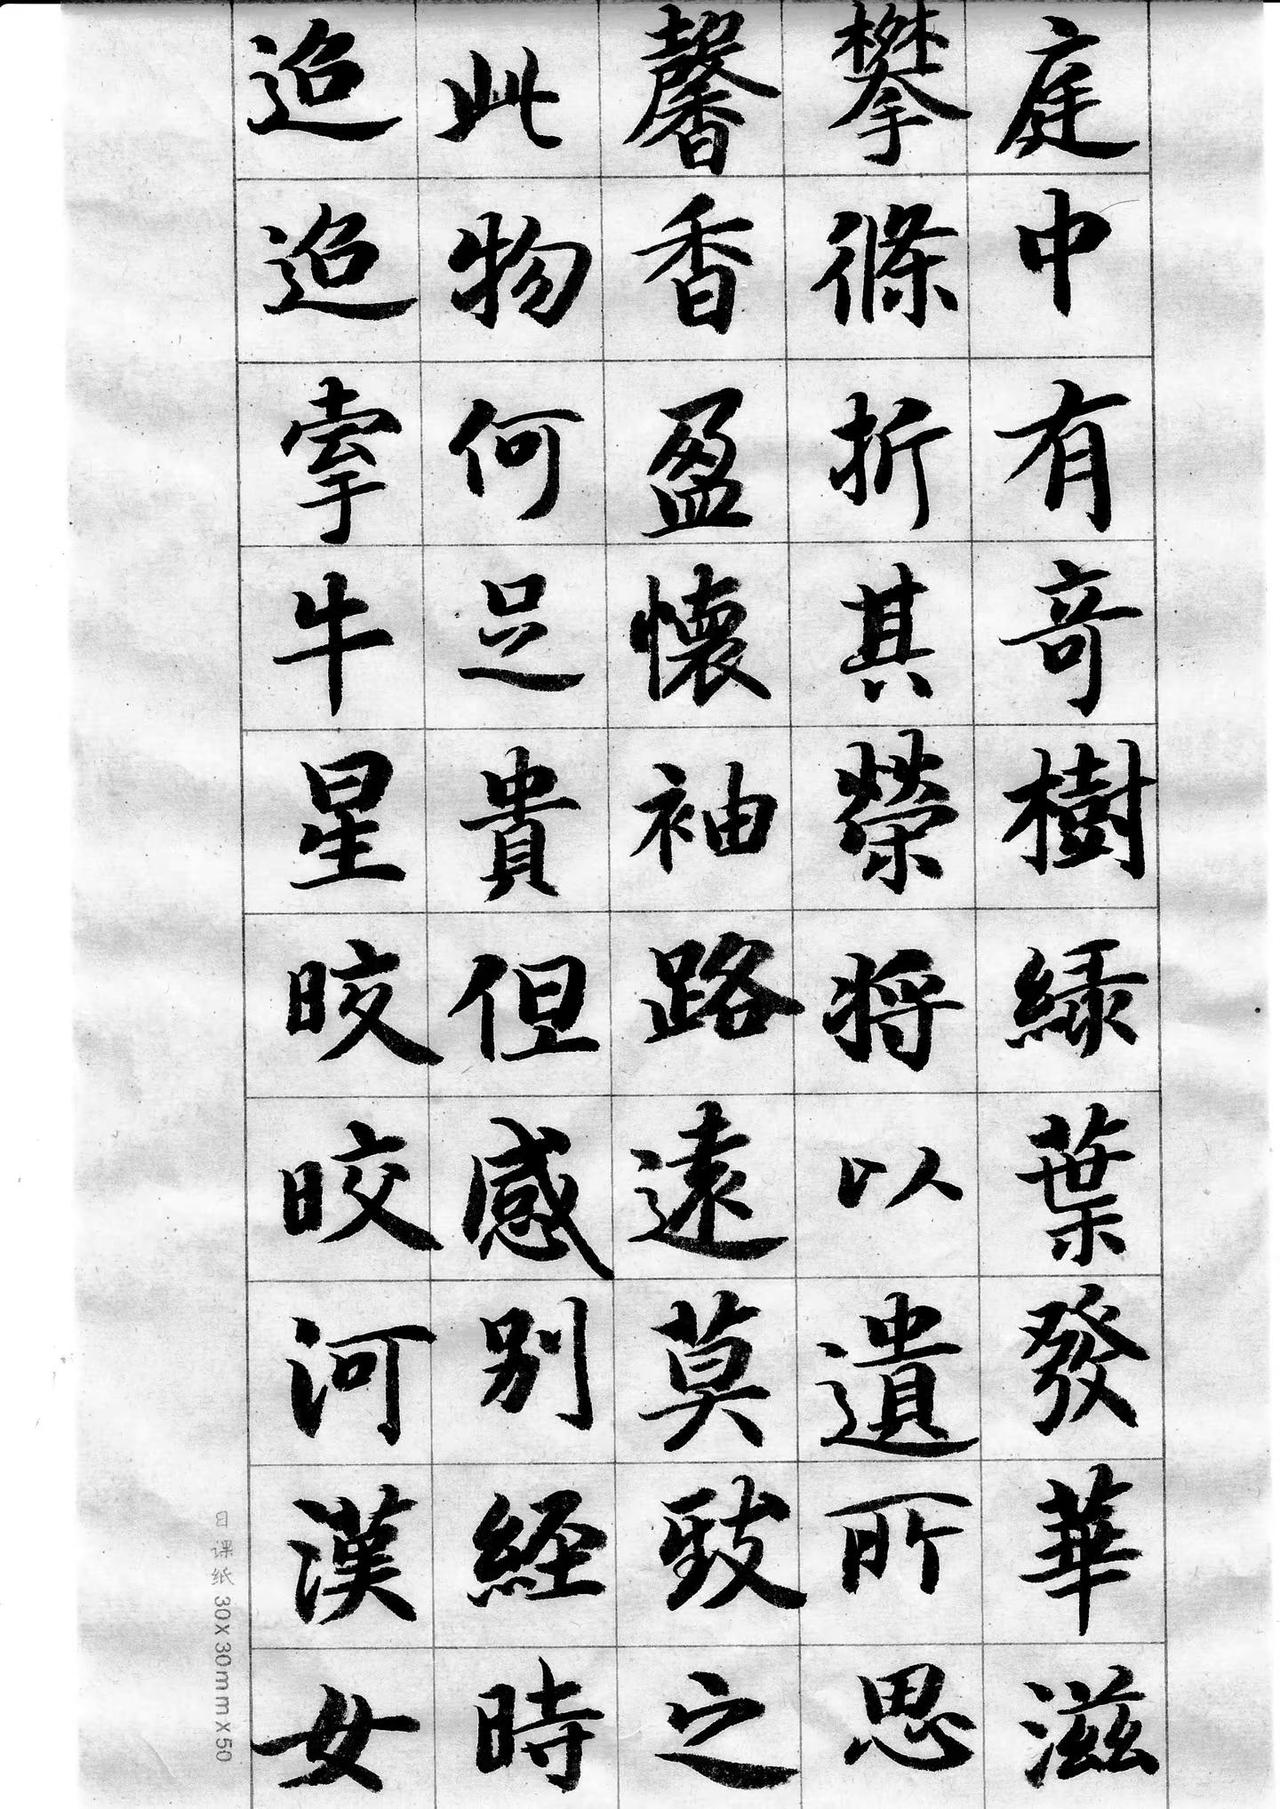 庭中有竒樹緑葉發華滋
攀條折其榮將以遺所思
馨香盈懷袖路遠莫致之
此物何足貴但感别經時
迢迢牽牛星晈晈河漢女
日课纸 30x30mmx50